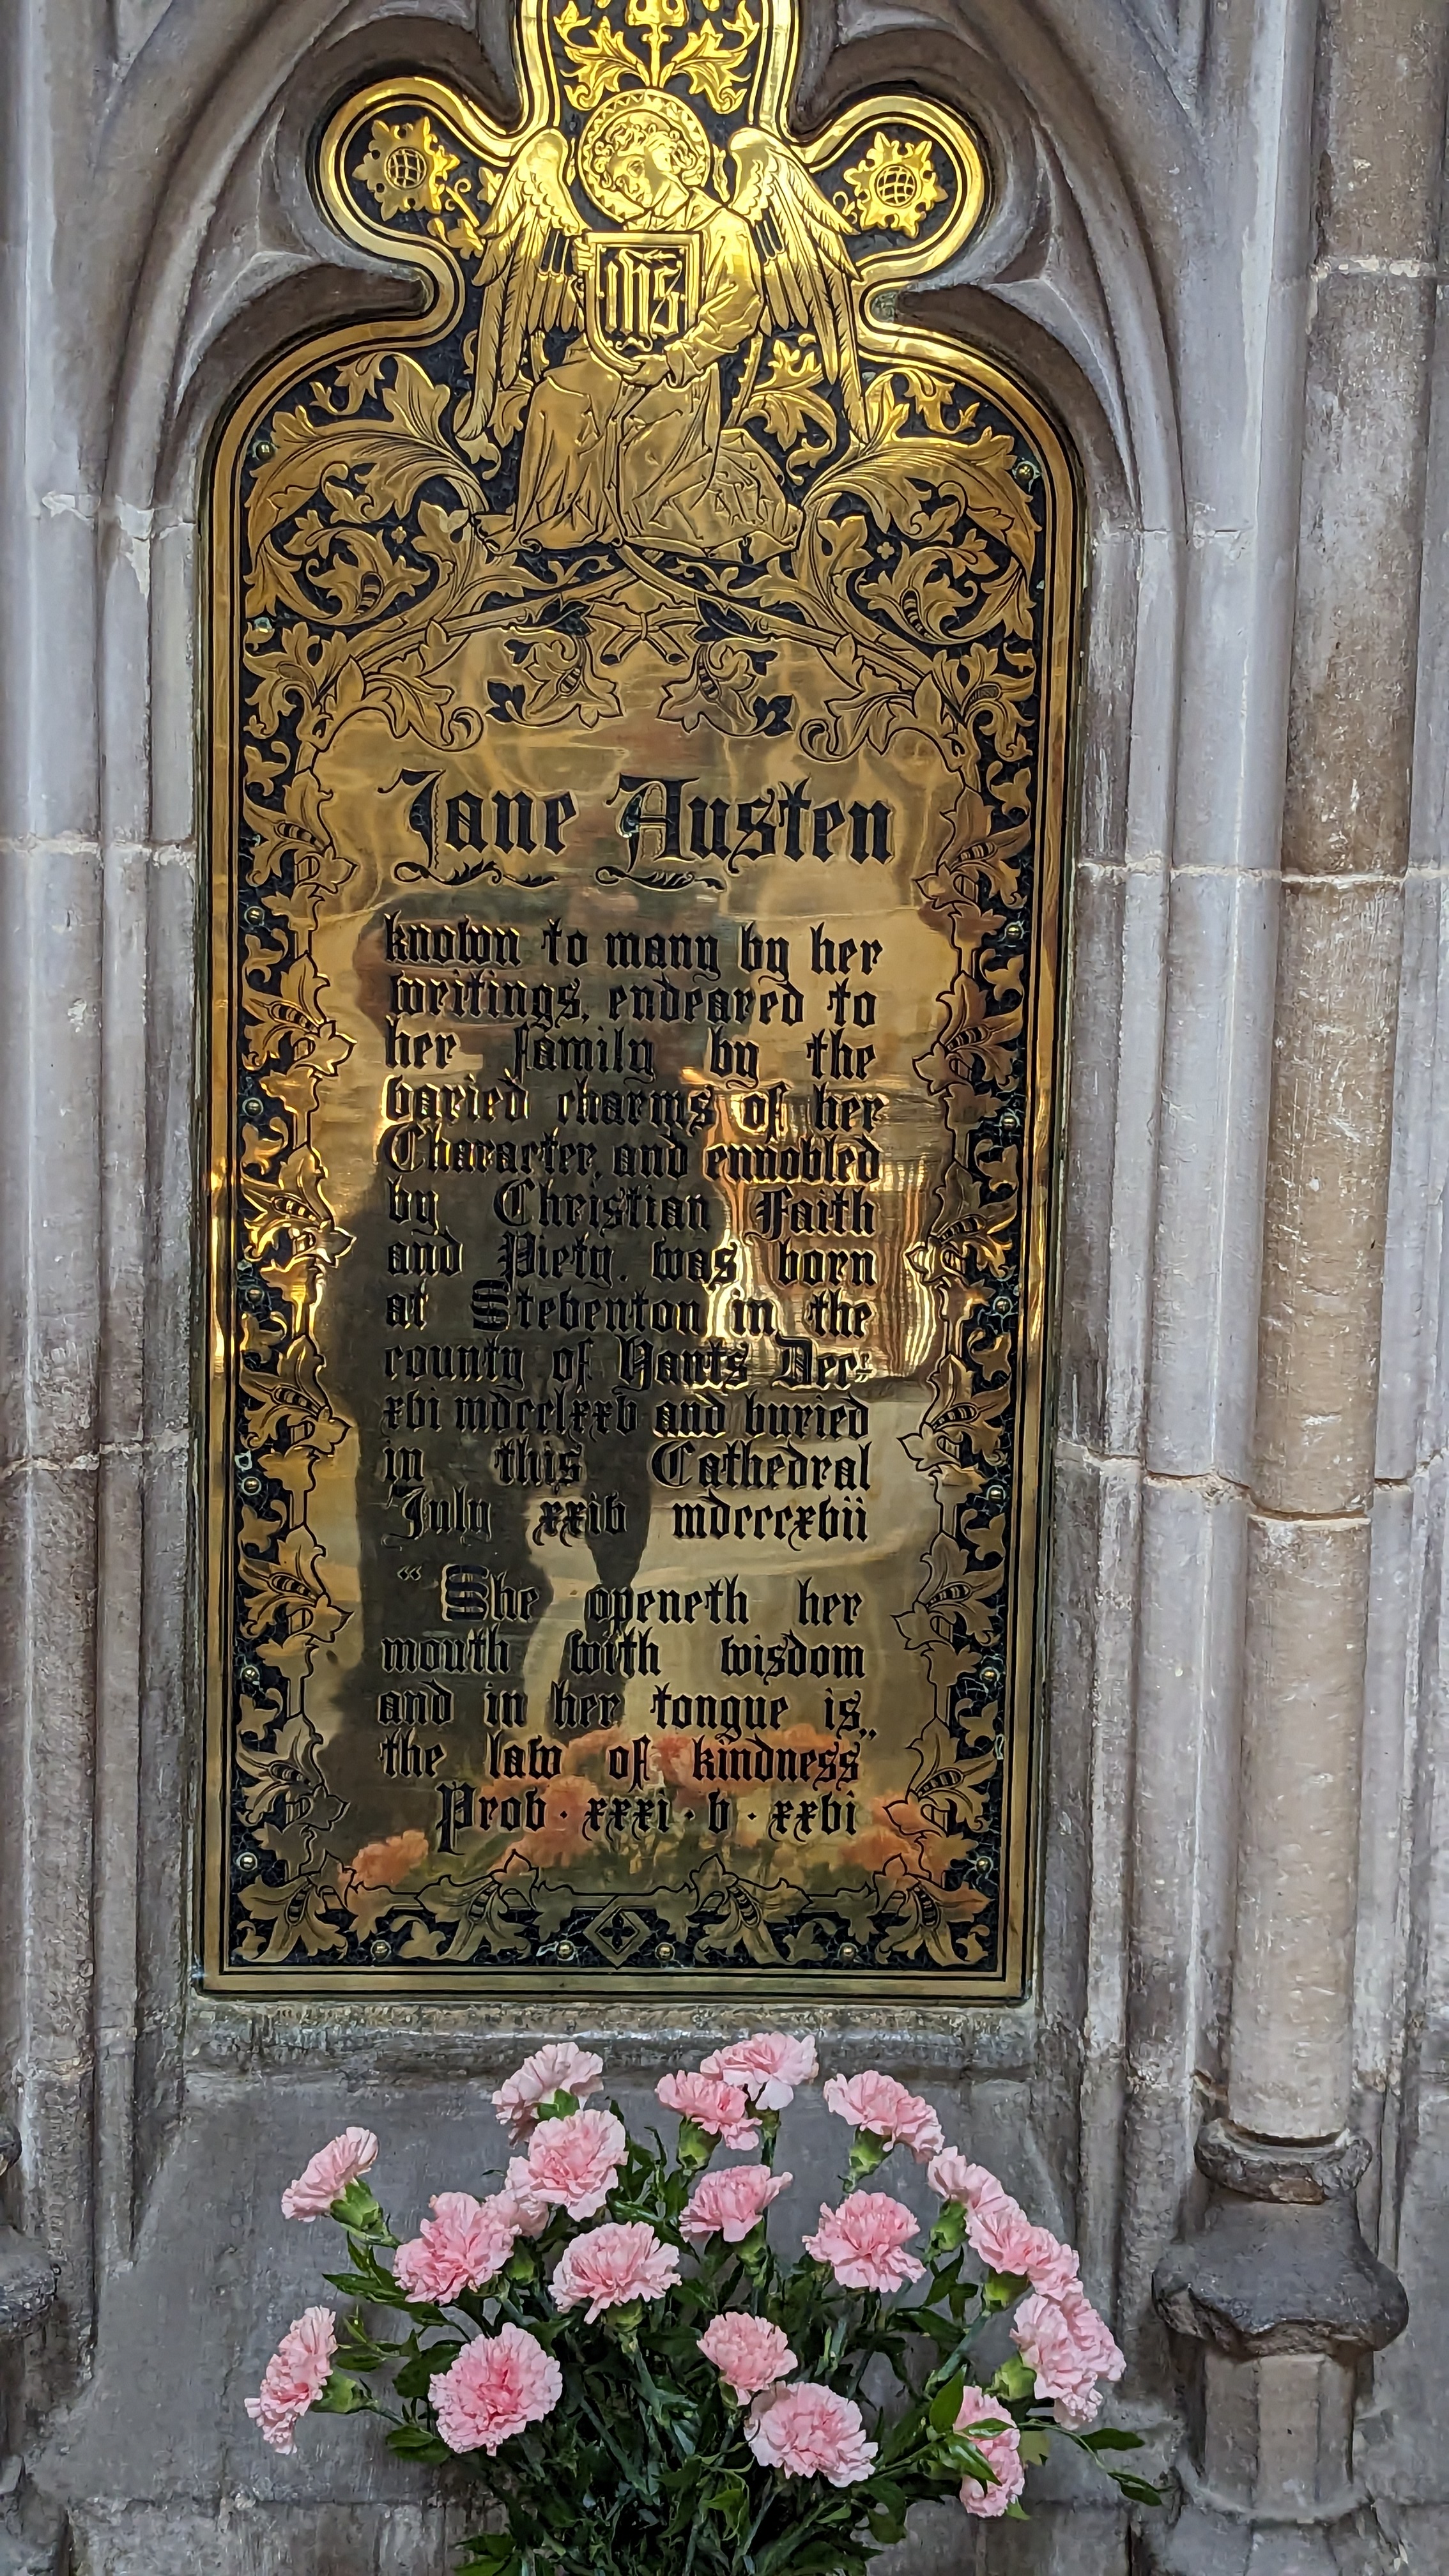 IHS
Jane Austen
known to many by her
writings, endeared to
her family by the
varied charms of her
Character, and ennobled
by Christian Faith
and Piety, was born
at Steventon in the
county of Hants Decr
xvi mdcclxxv and buried
in this Cathedral
July xxiv mdcccxvii
“She openeth her
mouth with wisdom
and in her tongue is
the law of kindness”
Prov · xxxi · v · xxvi